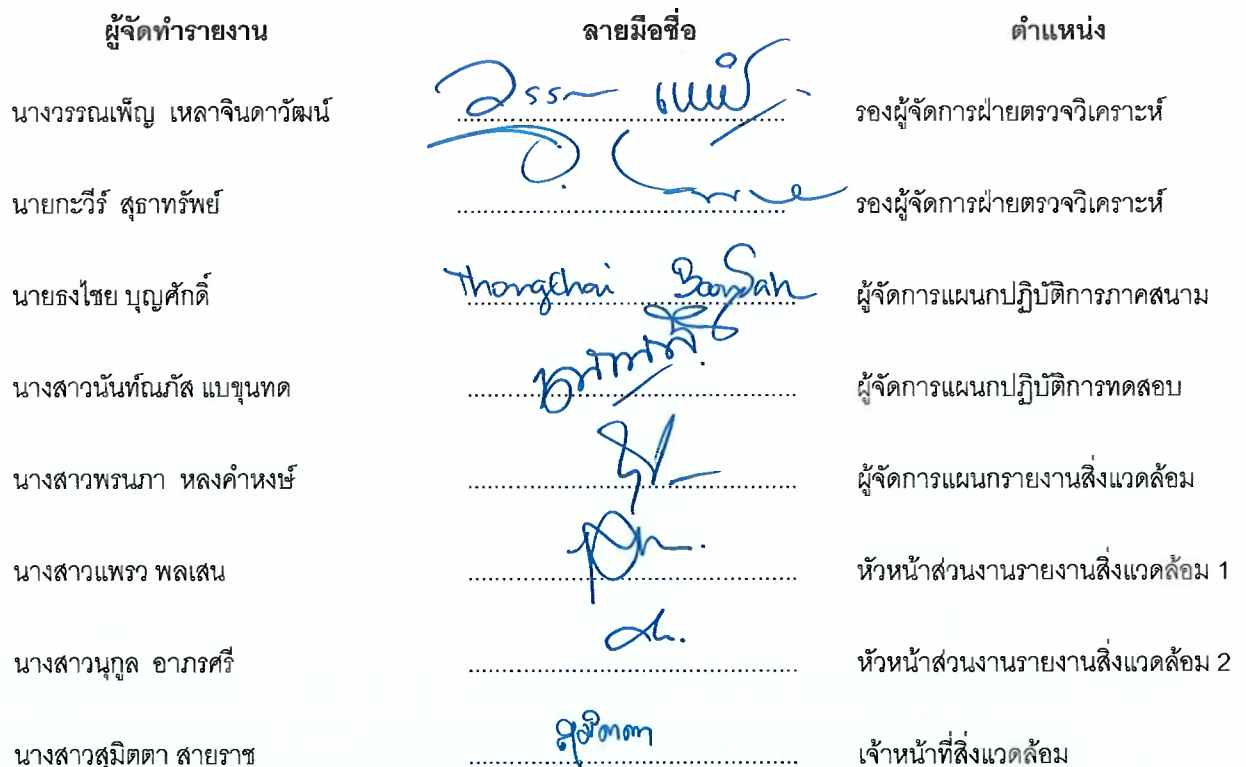 ผู้จัดทำรายงาน ลายมือชื่อ ตำแหน่ง
นางวรรณเพ็ญ เหลาจินดาวัฒน์ วรรณ เพ็ญ รองผู้จัดการฝ่ายตรวจวิเคราะห์
นายกะวีร์ สุธาทรัพย์ รองผู้จัดการฝ่ายตรวจวิเคราะห์
นายธงไชย บุญศักดิ์ Thongchai Boonsah ผู้จัดการแผนกปฏิบัติการภาคสนาม
นางสาวนันท์ณภัส แบขุนทด ผู้จัดการแผนกปฏิบัติการทดสอบ
นางสาวพรนภา หลงคำหงษ์ ผู้จัดการแผนกรายงานสิ่งแวดล้อม
นางสาวแพรว พลเสน หัวหน้าส่วนงานรายงานสิ่งแวดล้อม 1
นางสาวนุกูล อาภรศรี หัวหน้าส่วนงานรายงานสิ่งแวดล้อม 2
นางสาวสุมิตตา สายราช สุมิตตา เจ้าหน้าที่สิ่งแวดล้อม